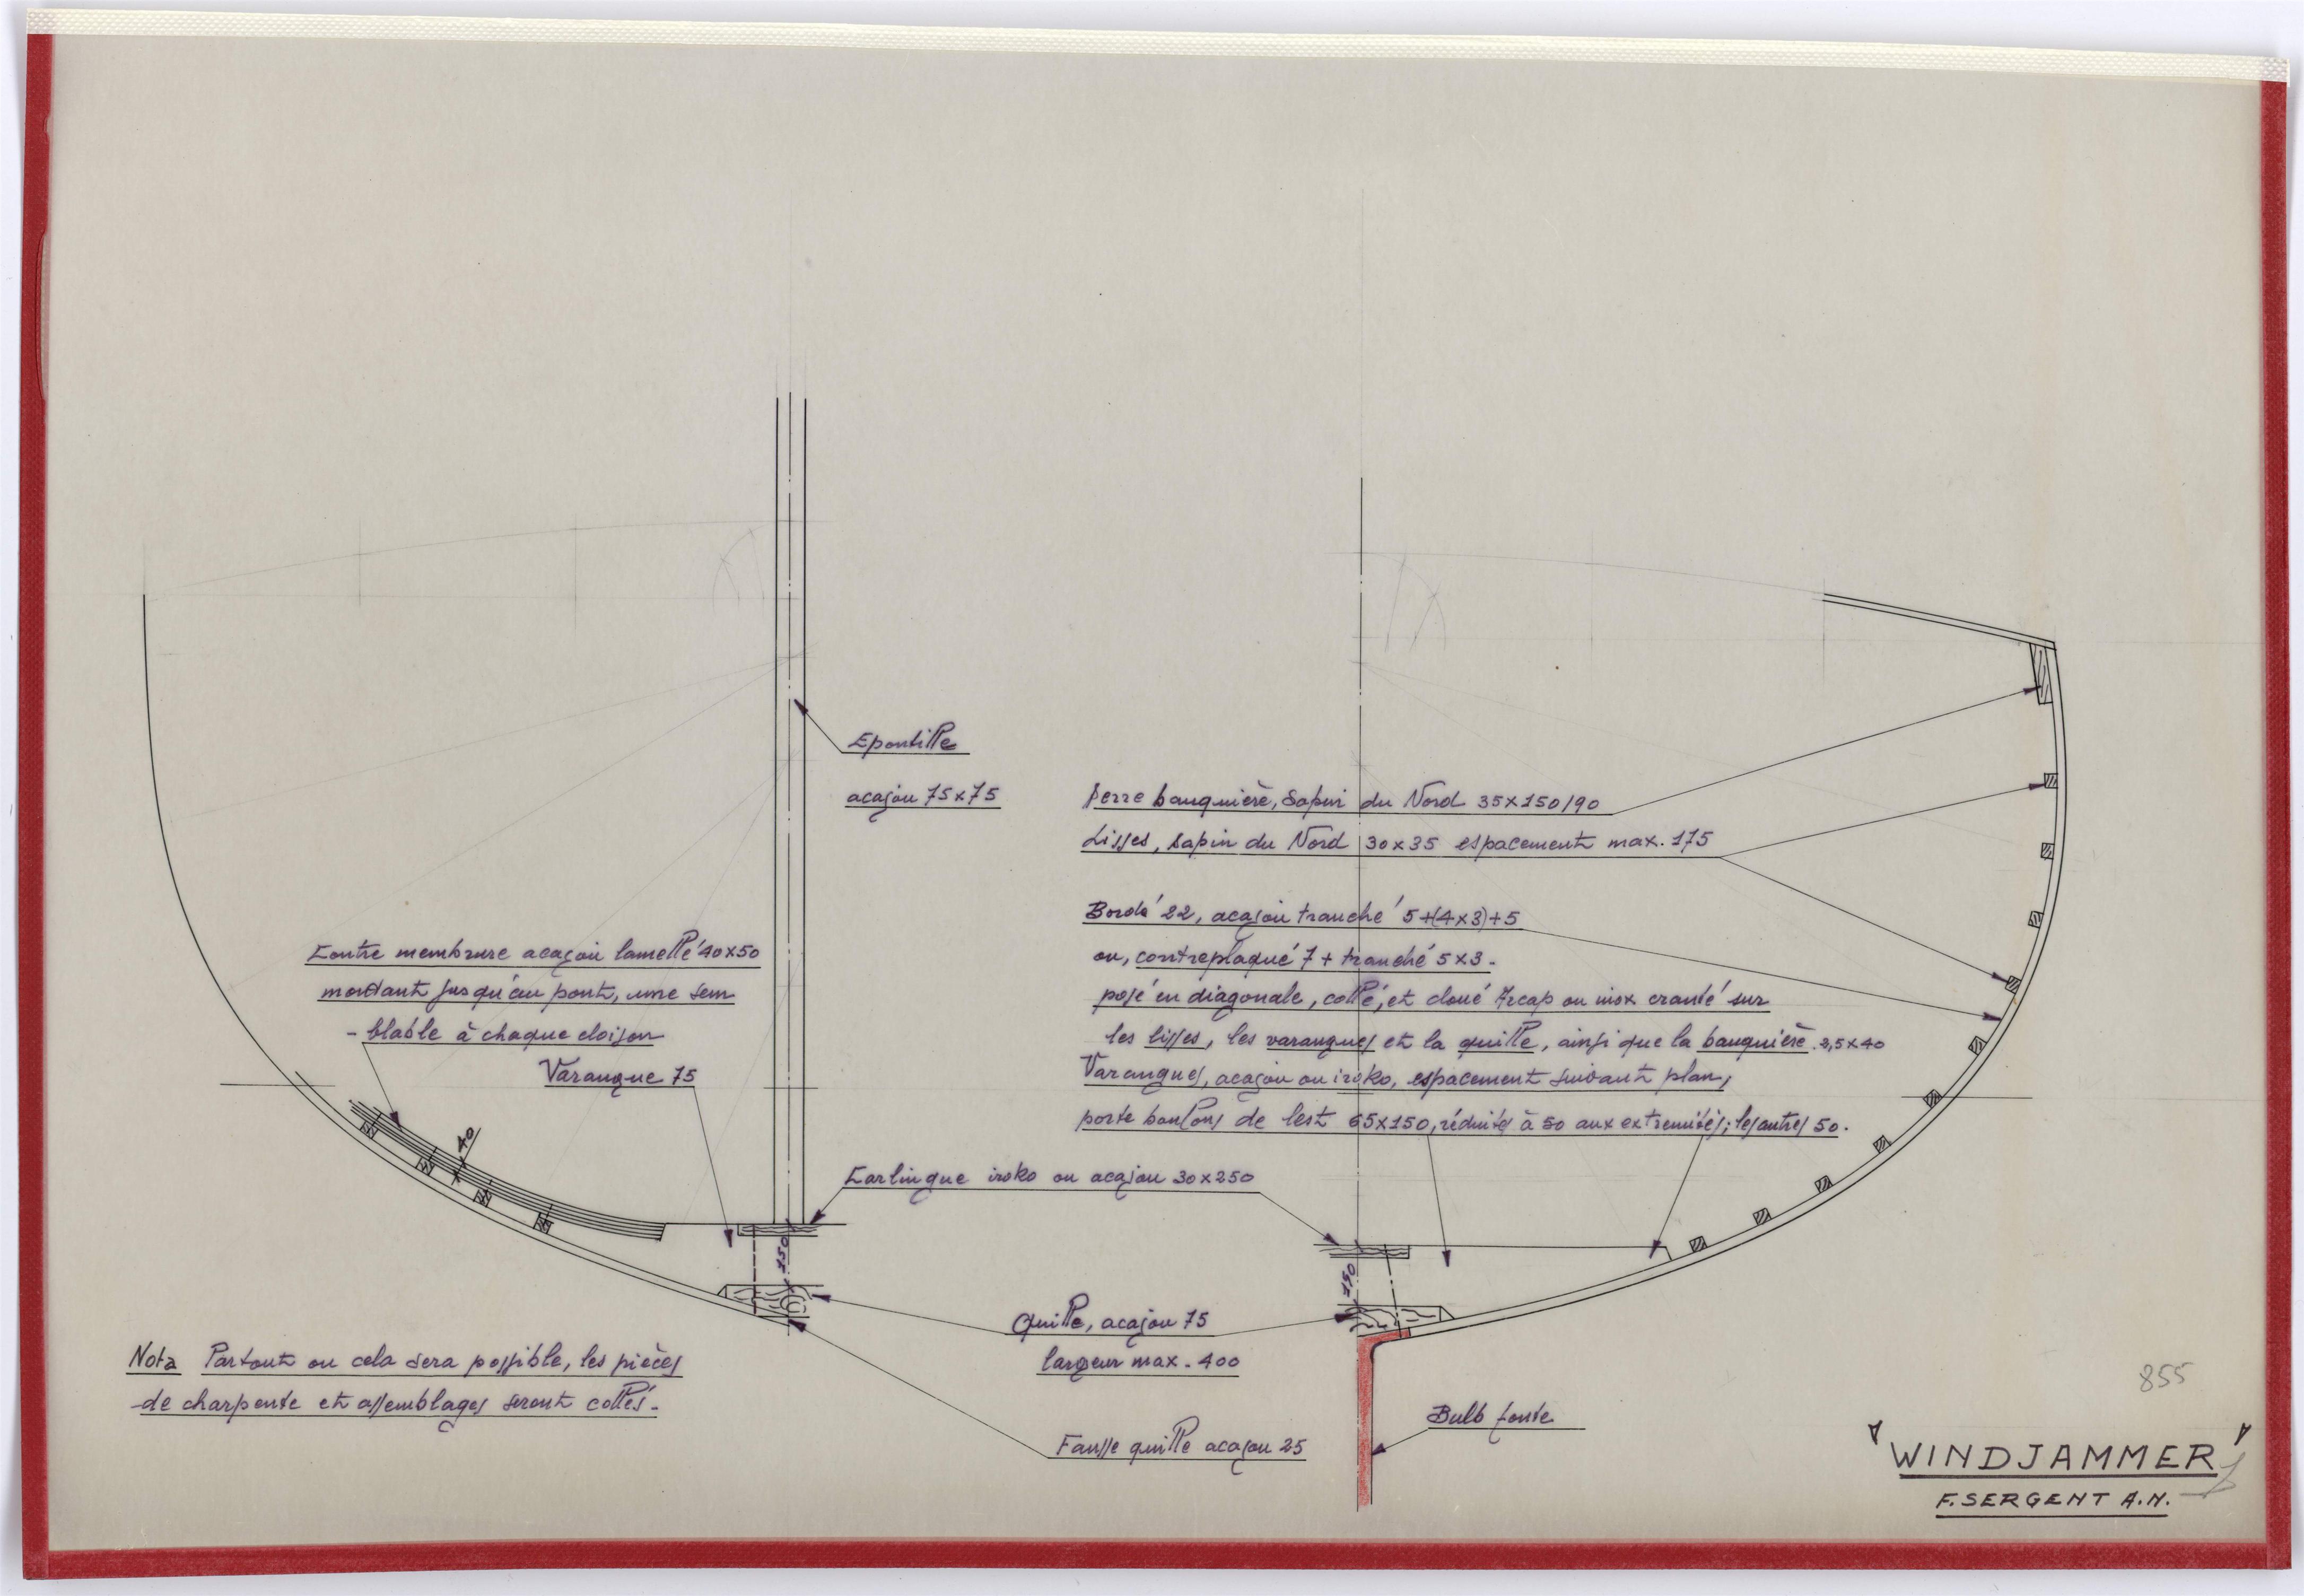 Epontille
acajou 75x75
Serre bauquière, Sapin du Nord 35x150/90
Lisses, sapin du Nord 30x35 espacement max. 175
Bordé 22, acajou tranché 5+(4x3)+5
ou, contreplaqué 7 + tranché 5x3.
posé en diagonale, collé, et cloué Arcap ou inox cranté sur
les lisses, les varangues et la quille, ainsi que la bauquière. 2,5x40
Varangues, acajou ou iroko, espacement suivant plan;
porte boulons de lest 65x150, réduites à 50 aux extremités; les autres 50.
Contre membrure acajou lamellé 40x50
montant jusqu'au pont, une sem
-blable à chaque cloison
Varangue 75
40
Carlingue iroko ou acajou 30x250
150
150
Quille, acajou 75
largeur max. 400
Nota Partout ou cela sera possible, les pièces
de charpente et assemblages seront collés.
Fausse quille acajou 25
Bulb fonte
855
"WINDJAMMER"
F. SERGENT A.N.